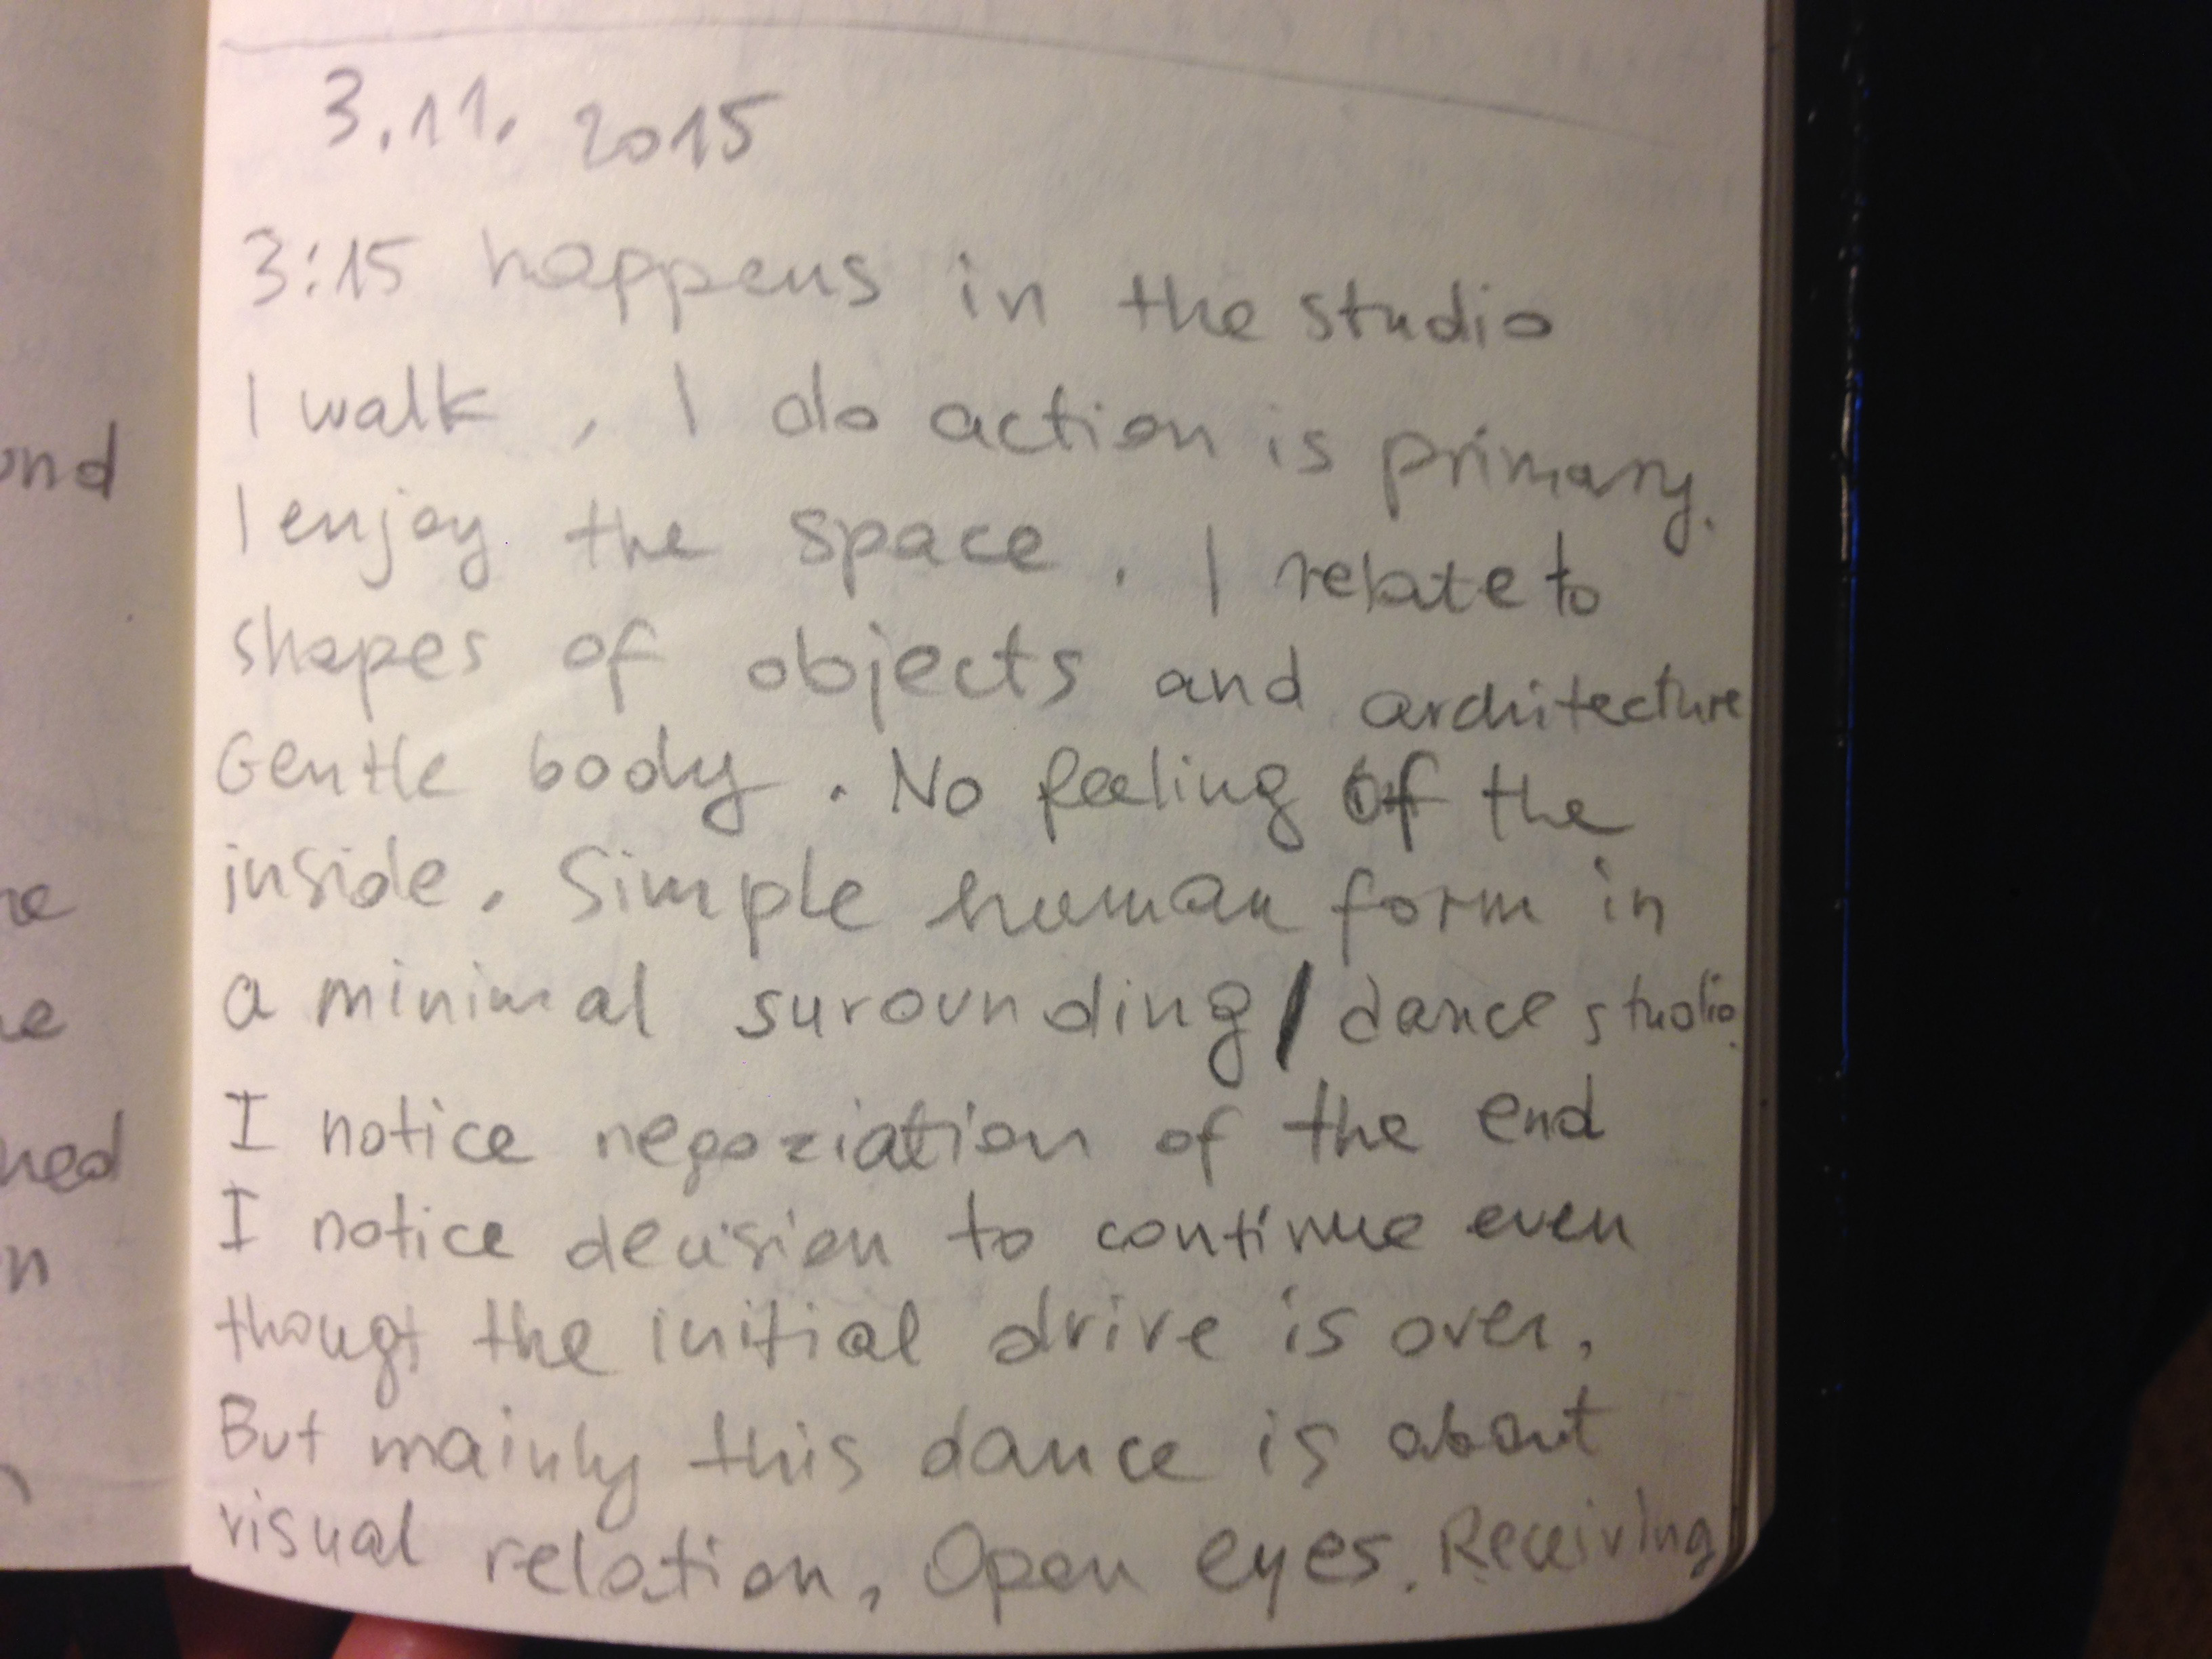 3.11. 2015
3:15 happens in the studio
I walk, I do action is primary.
I enjoy the space. I relate to
shapes of objects and architecture
Gentle body. No feeling of the
inside. Simple human form in
a minimal surounding/dance studio.
I notice negoziation of the end
I notice decision to continue even
thougt the initial drive is over.
But mainly this dance is about
visual relation, Open eyes. Receiving
ond
ne
ne
ned
n